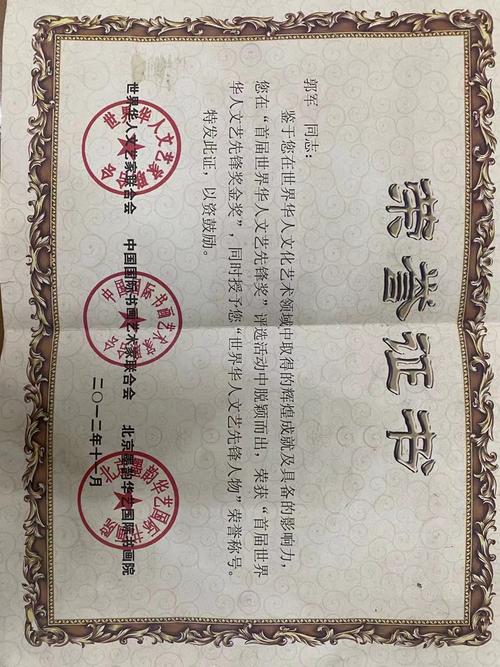 荣誉证书
郭军 同志:
鉴于您在世界华人文化艺术领域中取得的辉煌成就及具备的影响力,
您在“首届世界华人文艺先锋奖”评选活动中脱颖而出,荣获“首届世界
华人文艺先锋奖金奖”,同时授予您“世界华人文艺先锋人物”荣誉称号。
特发此证,以资鼓励。
世界华人文艺家联合会 中国国际书画艺术家联合会 北京 华艺国际书画院
二〇一二年十一月